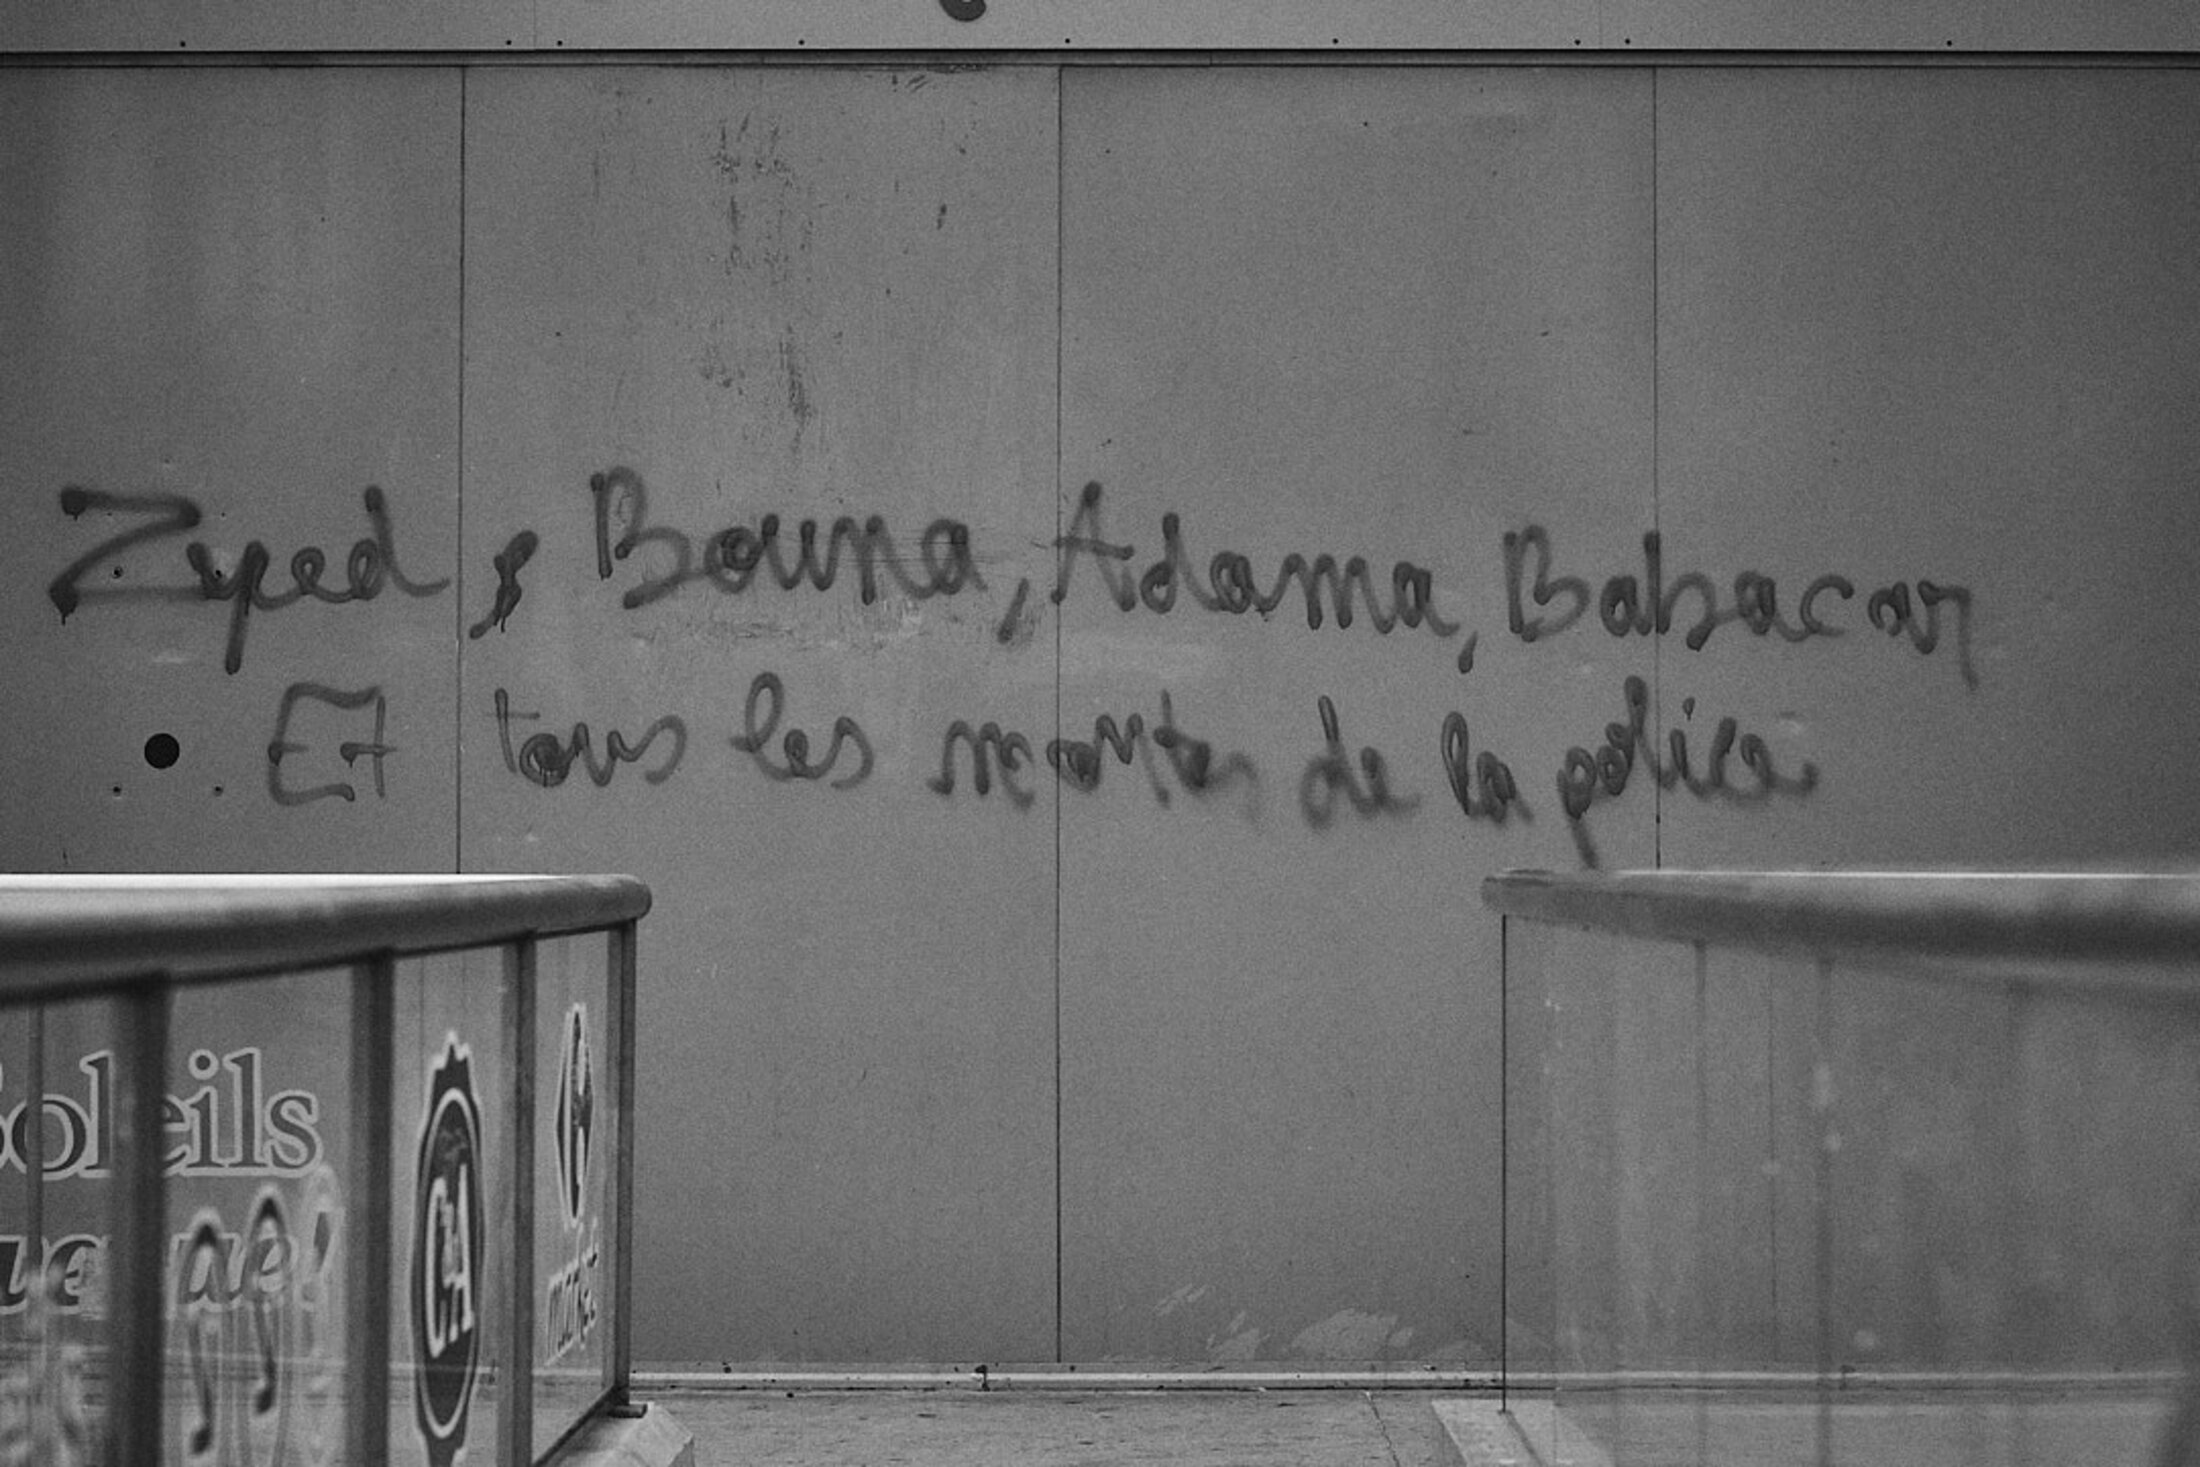 Zyed, Bouna, Adama, Babacar
Et tous les morts de la police
Soleils
C&A
market